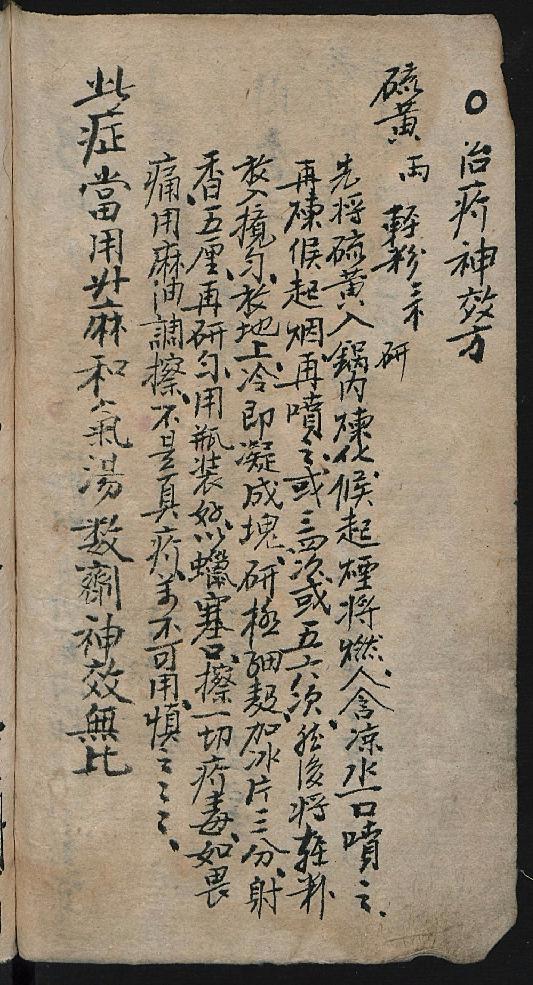 ○治疥神效方
硫黃 兩 輕粉 三 研
先將硫黃入鍋內煉化候起煙將燃人含凉水一口噴之、
再煉候起烟再噴之或三四次或五六次、然後將輕粉
放入攪勻放地上冷即凝成塊、研極細麪加冰片三分、射
香五厘再研勻用瓶裝好以蠟塞口擦一切疥毒如畏
痛用麻油調擦不是真疥萬不可用慎之之之、
此症當用升麻和氣湯数劑神效無比